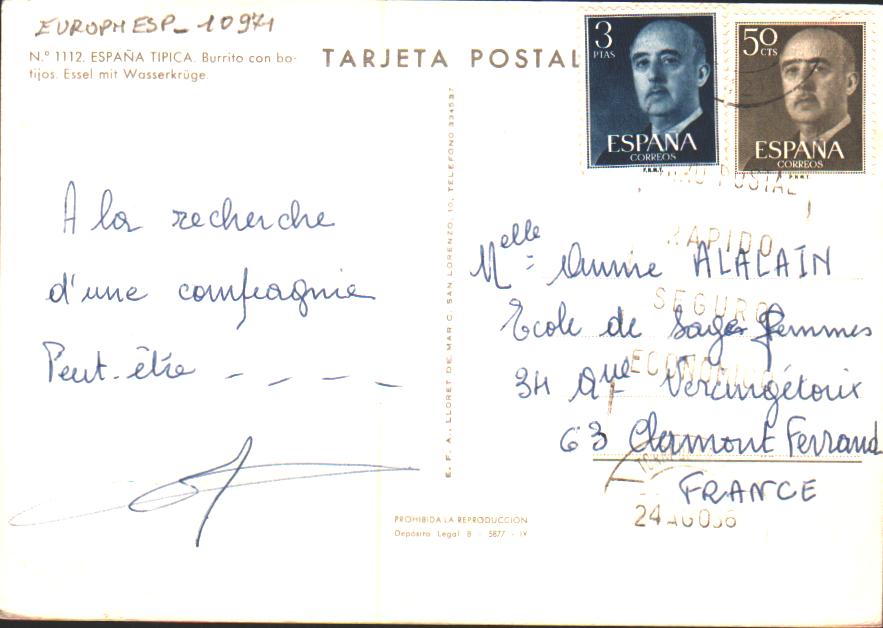 EUROPHESP_10971
N.º 1112. ESPAÑA TIPICA. Burrito con bo-
tijos. Essel mit Wasserkrüge.
TARJETA POSTAL
3
PTAS
ESPAÑA
CORREOS
F.N.M.T.
50
CTS
ESPAÑA
CORREOS
F.N.M.T.
POSTAL
RAPIDO
SEGURO
ECONOMICO
A la recherche
d'une compagnie
Peut-être _ _ _ _
E. F. A., LLORET DE MAR C. SAN LORENZO, 10, TELEFONO 334537
Melle = Annie ALALAIN
Ecole de Sages femmes
34 Que Vercingétorix
63 Clermont Ferrand
FRANCE
24 AGO
PROHIBIDA LA REPRODUCCION
Depósito Legal B - 5877 - IV